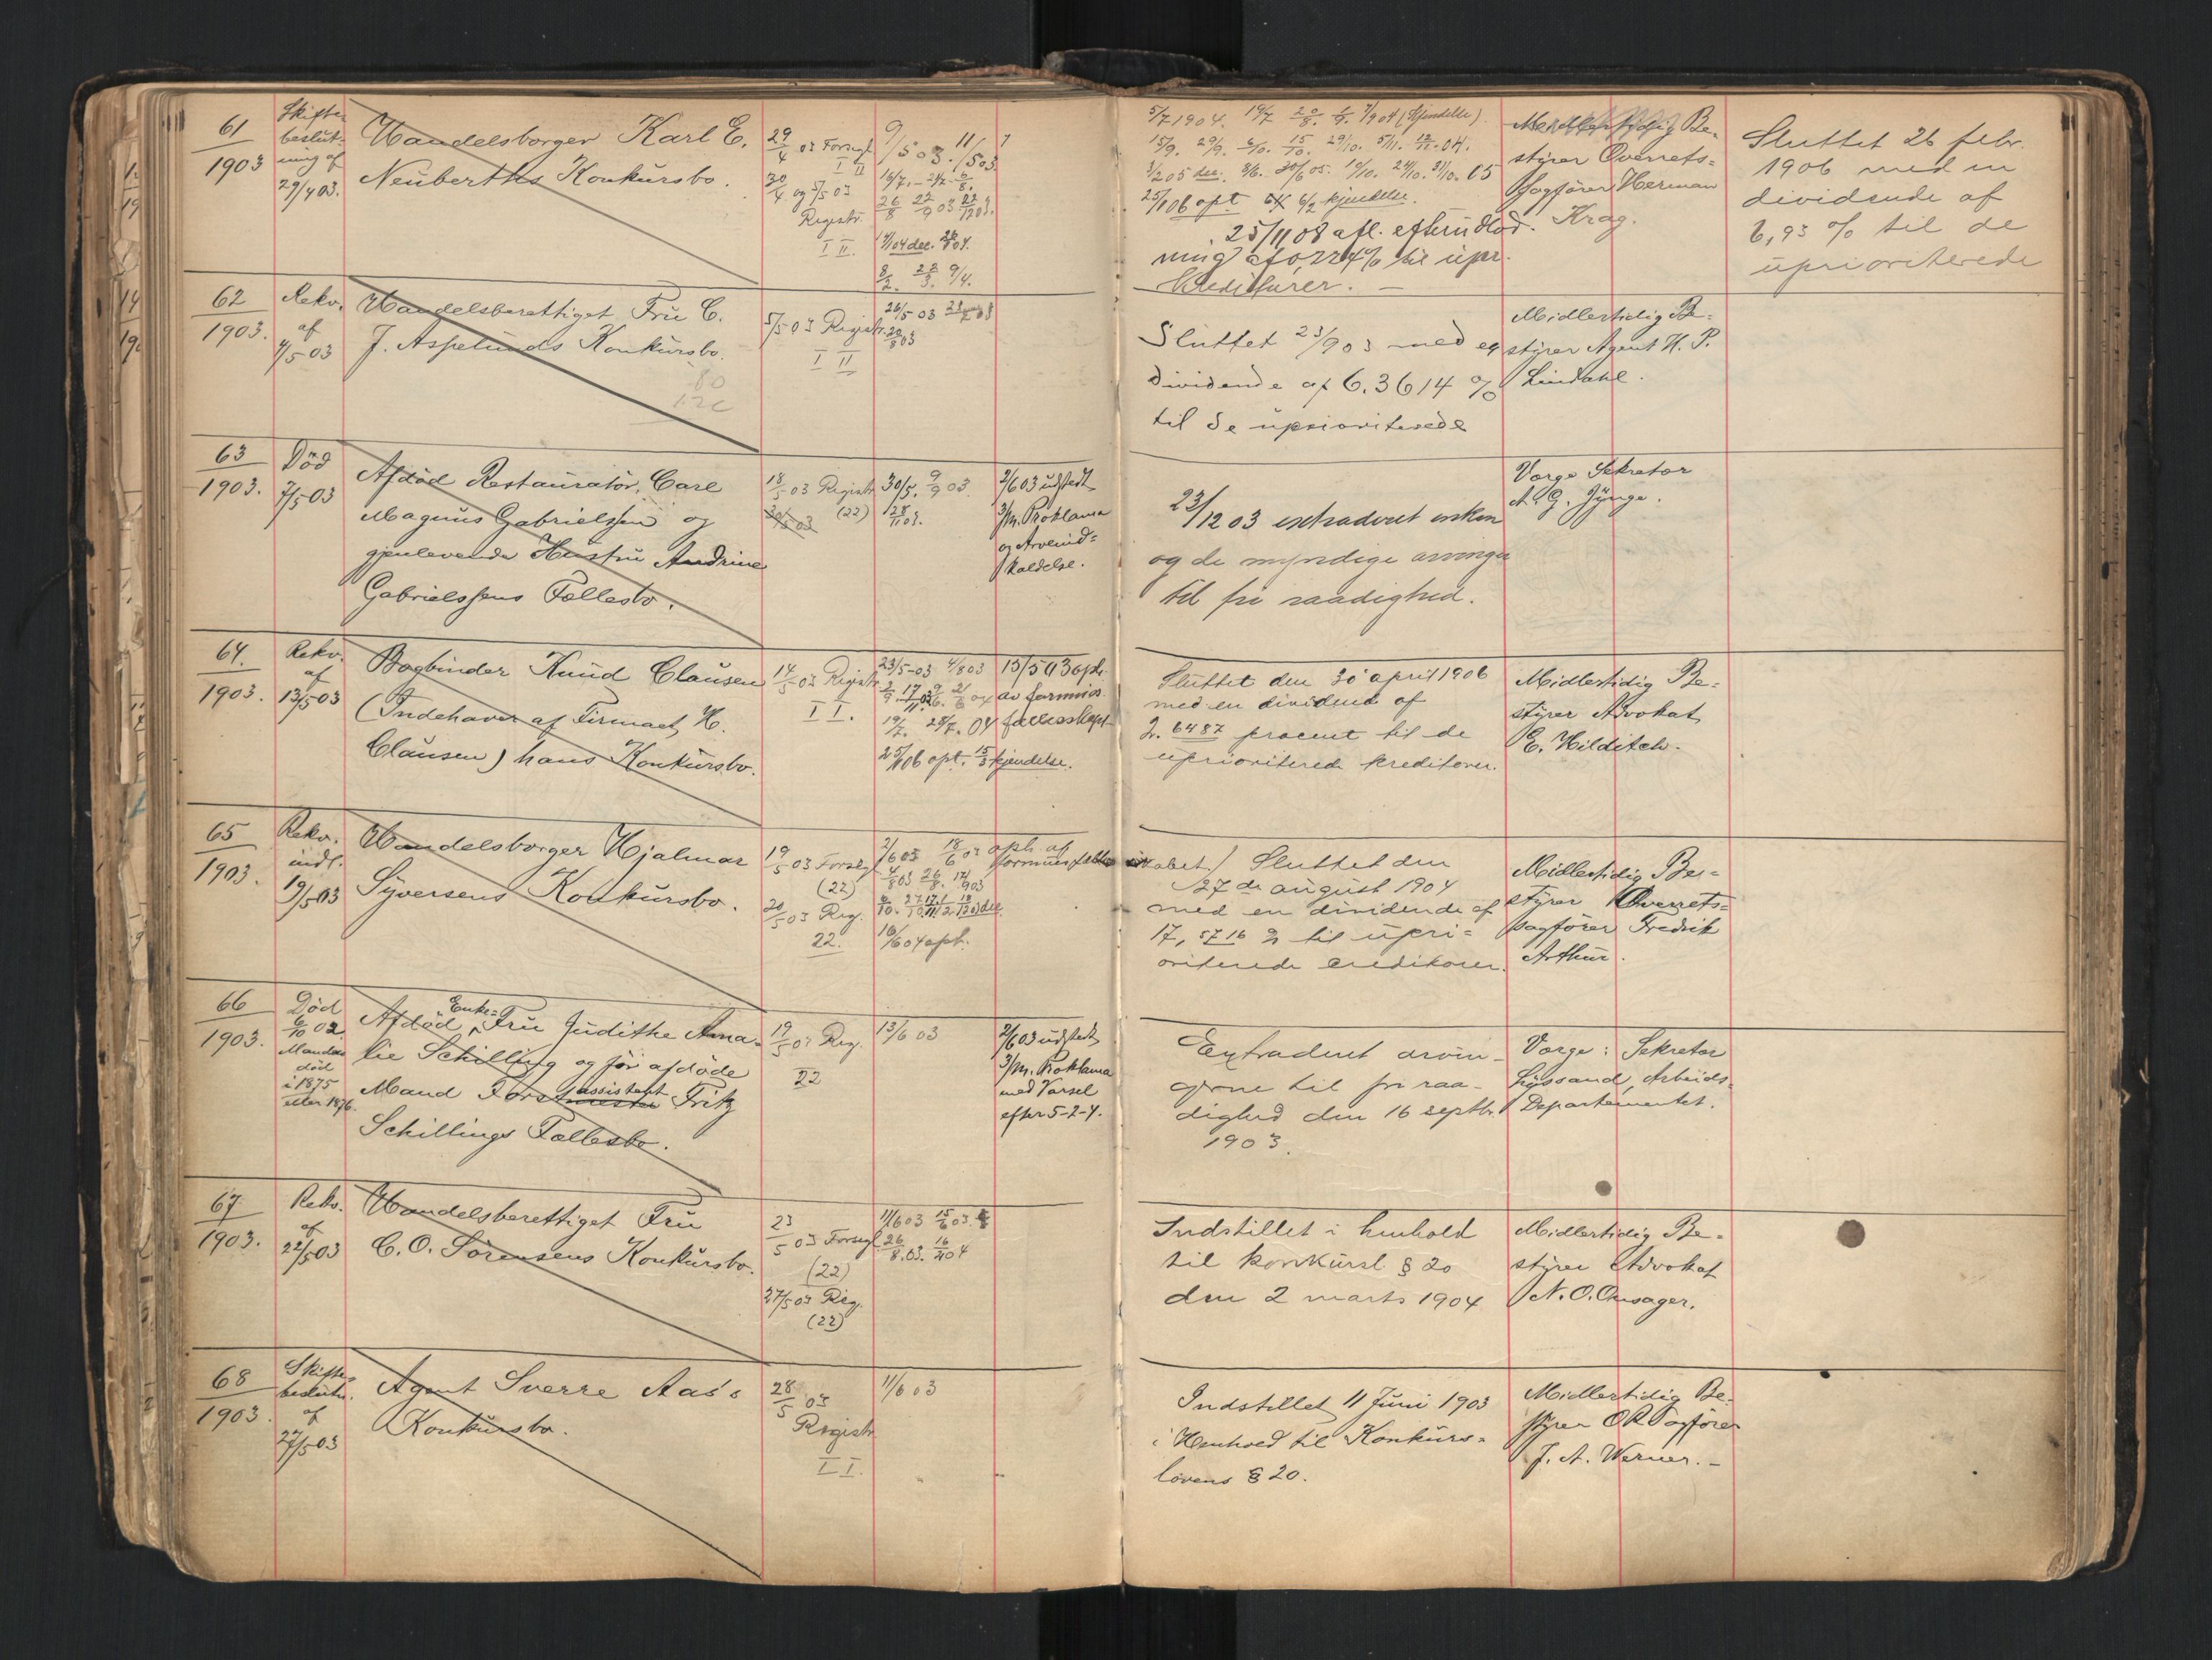 61
1903
Skifte-
beslut-
ning af
29/4 03.
Handelsborger Karl E.
Neuberths Konkursbo.
29/4 03 Forsegl.
I II
30/4 og 5/5 03
Registr.
I II.
9/5 03. 11/5 03.
26/8 22/9 03
14/1 04 dec.
8/2. 22/3. 9/4.
5/7 1904. 19/7 (Kjendelse)
15/9. 29/9. 6/10. 15/10. 29/10. 5/11. 04.
25/1 06 opt. 6/2 kjendelse.
25/11 08 afl. efterudlod-
ning af 0,224 % til upr.
kreditorer. —
Midlertidig Be-
styrer Overrets-
sagfører Herman
Krag.
Sluttet 26 febr.
1906 med en
dividende af
6,93 % til de
uprioriterede
62
1903.
Rekv.
af
4/5 03
Handelsberettiget Fru C.
J. Aspelunds Konkursbo.
80
120
5/5 03 Registr.
I II
26/5 03
20/8 03
Sluttet 23/9 03 med en
dividende af 6.3614 %
til de uprioriterede
Midlertidig Be-
styrer Agent H. P.
Lindahl.
63
1903.
Død
7/5 03
Afdød Restauratør, Carl
Magnus Gabrielssen og
gjenlevende Hustru Andrine
Gabrielssens Fællesbo.
18/5 03 Registr.
(22)
30/5 03
30/5. 9/9 03.
28/11 03.
2/6 03 udstedt
3/m. Proklama
og Arveind-
kaldelse.
23/12 03 extraderet enken
og de myndige arvinger
til fri raadighed.
Verge Sekretær
A. G. Jynge.
64.
1903.
Rekv.
af
13/5 03
Bogbinder Knud Clausen
(Indehaver af Firmaet K.
Clausen) hans Konkursbo.
14/5 03 Registr.
I I.
23/5 03 4/8 03
19/7. 28/7. 04
25/1 06 opt. 15/3 kjendelse.
15/5 03 oph.
av formues
fællesskapet
Sluttet den 30 april 1906
med en dividend af
2.6487 procent til de
uprioriterede kreditorer.
Midlertidig Be-
styrer Advokat
E. Hilditch.
65
1903.
Rekv.
indl.
19/5 03
Handelsborger Hjalmar
Syversens Konkursbo.
19/5 03 Forsegl.
(22)
20/5 03 Reg.
22.
2/6 03 18/6 03 oph. af
formuesfælles-
4/8 03 26/8.
10/6 04 opt.
skabet) Sluttet den
27de august 1904
med en dividende af
17,5716 % til upri-
oriterede creditorer.
Midlertidig Be-
styrer Overrets-
sagfører Fredrik
Arthur.
66
1903.
Død
6/10 02
Manden
død
i 1875
eller 1876.
Enke-
Afdød Fru Judithe Ama-
lie Schilling og før afdøde
assistent
Mand Forstmester Fritz
Schillings Fællesbo.
19/5 03 Reg.
22
13/6 03
2/6 03 udstedt
3/m. Proklama
med Varsel
efter 5-2-4.
Extraderet arvin-
gerne til fri raa-
dighed den 16 septbr.
1903.
Verge: Sekretær
Lyssand, Arbeids-
Departementet.
67
1903.
Rekv.
af
22/5 03
Handelsberettiget Fru
C. O. Sørensens Konkursbo.
23/5 03 Forsegl.
(22)
27/5 03 Reg.
(22)
11/6 03 15/6 03.
26/8. 03. 16/2 04
Indstillet i henhold
til konkursl § 20
den 2 marts 1904
Midlertidig Be-
styrer Advokat
N. O. Onsager.
68
1903.
Skifte-
beslutn.
af
27/5 03
Agent Sverre Aas's
Konkursbo.
28/5 03
Registr.
I I.
11/6 03
Indstillet 11 Juni 1903
i Henhold til Konkurs-
lovens § 20.
Midlertidig Be-
styrer O R Sagfører
J. A. Werner. -